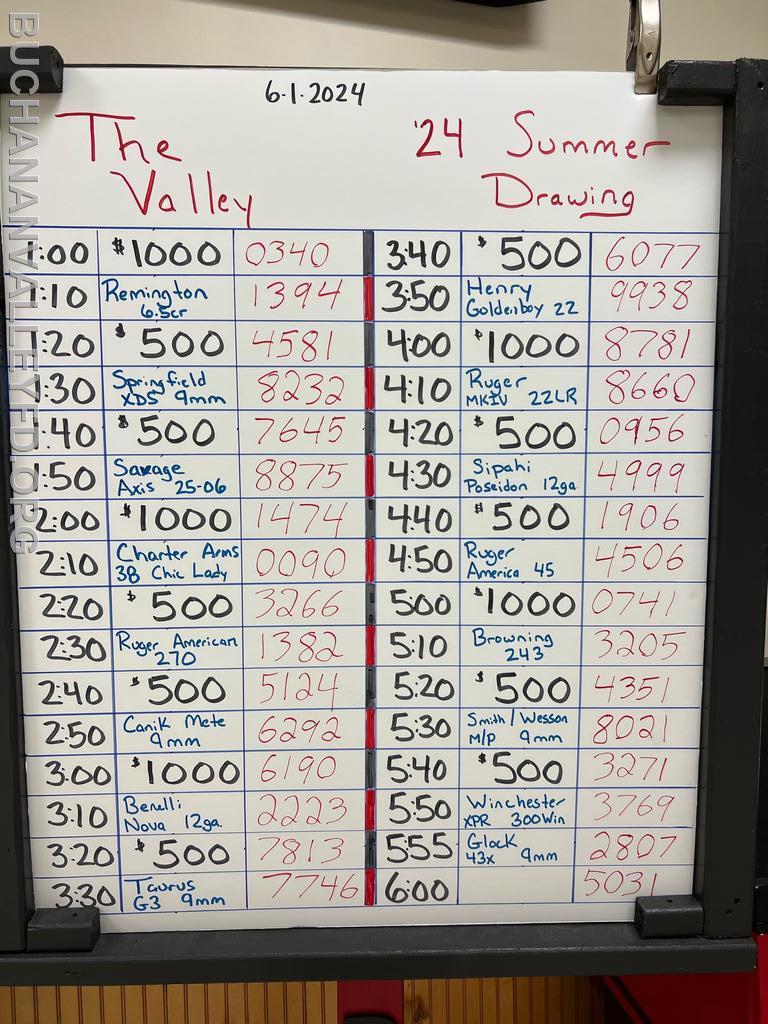 BUCHANANVALLEYFD.ORG
6.1.2024
The Valley
'24 Summer Drawing
1:00 $1000 0340
1:10 Remington 6.5cr 1394
1:20 $500 4581
1:30 Springfield XDS 9mm 8232
1:40 $500 7645
1:50 Savage Axis 25-06 8875
2:00 $1000 1474
2:10 Charter Arms 38 Chic Lady 0090
2:20 $500 3266
2:30 Ruger American 270 1382
2:40 $500 5124
2:50 Canik Mete 9mm 6292
3:00 $1000 6190
3:10 Benelli Nova 12ga. 2223
3:20 $500 7813
3:30 Taurus G3 9mm 7746
3:40 $500 6077
3:50 Henry Goldenboy 22 9938
4:00 $1000 8781
4:10 Ruger MKIV 22LR 8660
4:20 $500 0956
4:30 Sipahi Poseidon 12ga 4999
4:40 $500 1906
4:50 Ruger America 45 4506
5:00 $1000 0741
5:10 Browning 243 3205
5:20 $500 4351
5:30 Smith/Wesson M/P 9mm 8021
5:40 $500 3271
5:50 Winchester XPR 300Win 3769
5:55 Glock 43x 9mm 2807
6:00 5031